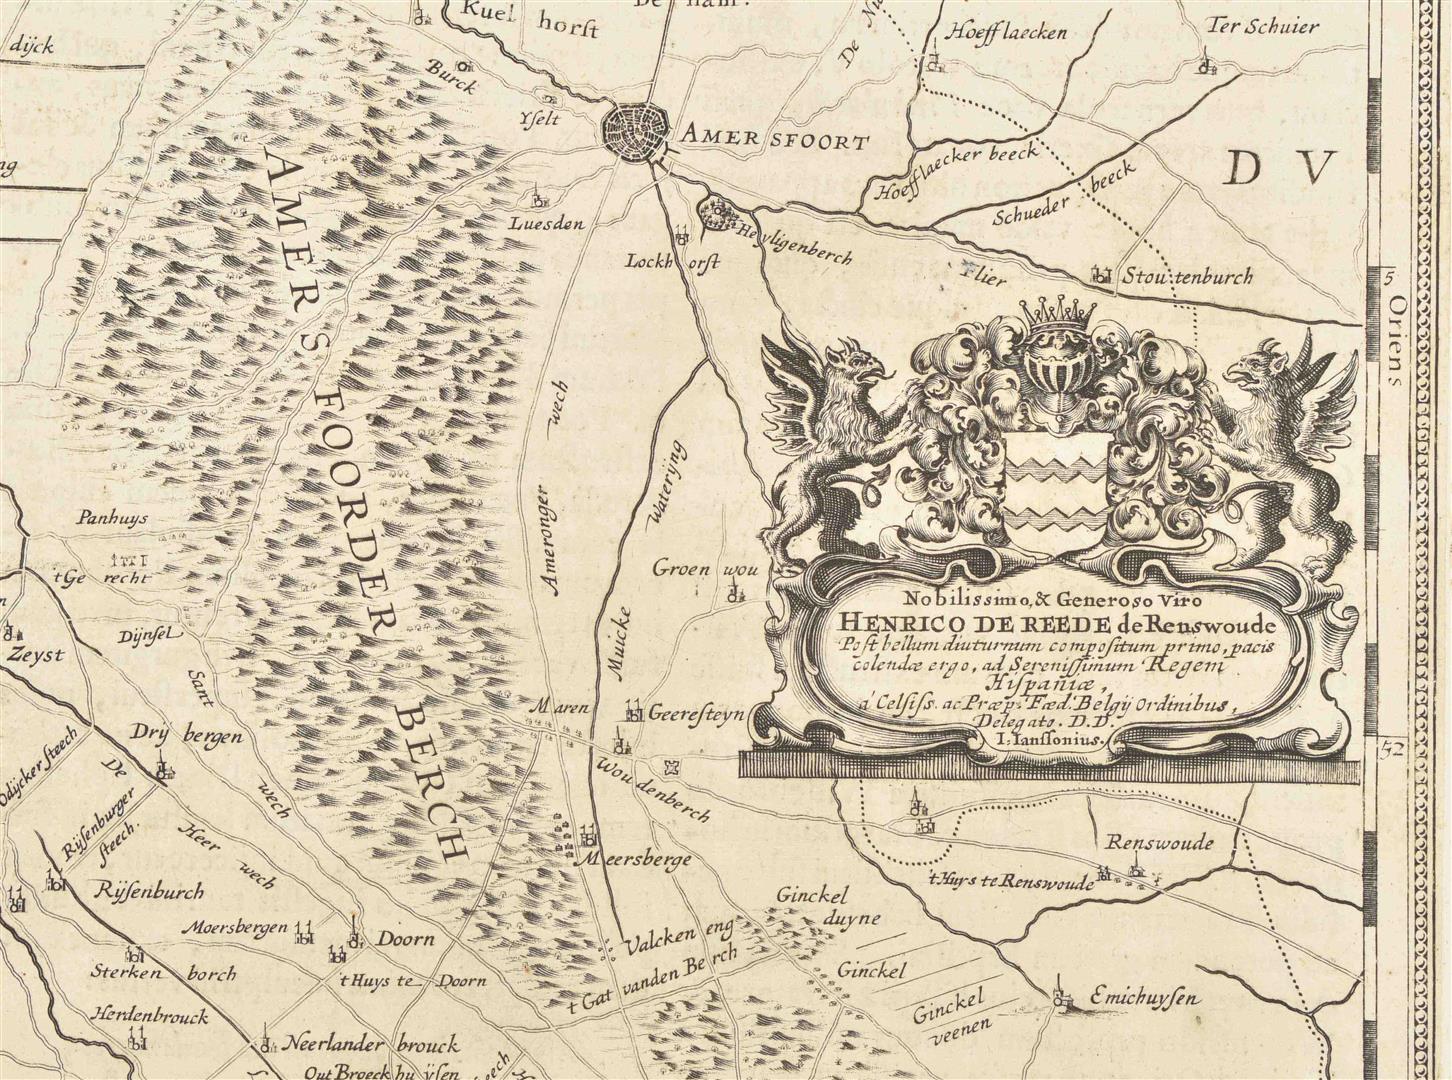 Kuel horſt
dijck
Hoefflaecken
Ter Schuier
De
Burck
Yſelt
AMERSFOORT
Hoefflaecker beeck
D V
Schueder beeck
Luesden
Heyligenberch
Lockhorſt
Flier
Stoutenburch
5
Oriens
AMERSFOORDER BERCH
Ameronger wech
Wateryng
Muicke
Panhuys
t Ge recht
Groen wou
Dijnſel
Zeyst
Sant wech
Nobilissimo, & Generoso Viro
HENRICO DE REEDE de Renswoude
Poſt bellum diuturnum compoſitum primo, pacis
colendæ ergo, ad Sereniſſimum Regem
Hiſpaniæ,
á Celſiſs. ac Præp. Fœd. Belgÿ Ordinibus,
Delegato. D.D.
I: Ianſſonius.
Maren
Geereſteyn
Drij bergen
52
Odijcker ſteech
De
Woudenberch
Rÿſenburger
ſteech.
Heer wech
Renswoude
Meersberge
't Huys te Renswoude
Rÿſenburch
Ginckel
duyne
Moersbergen
Doorn
Valcken eng
Sterken borch
't Huys te Doorn
t Gat vanden Berch
Ginckel
Ginckel
veenen
Emichuyſen
Herdenbrouck
Neerlander brouck
Out Broeck huÿſen